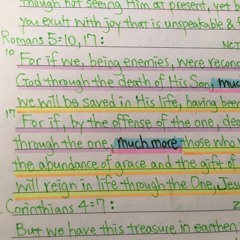 Though not seeing Him at present, yet b
you exult with joy that is unspeakable &
Romans 5=10, 17:
10 For if we, being enemies, were recon
God through the death of His Son, muc
we will be saved in His life, having been
17 For if, by the offense of the one, dea
through the one, much more those who
the abundance of grace and the gift of
will reign in life through the One, Jes
Corinthians 4=7:
But we have this treasure in earthen